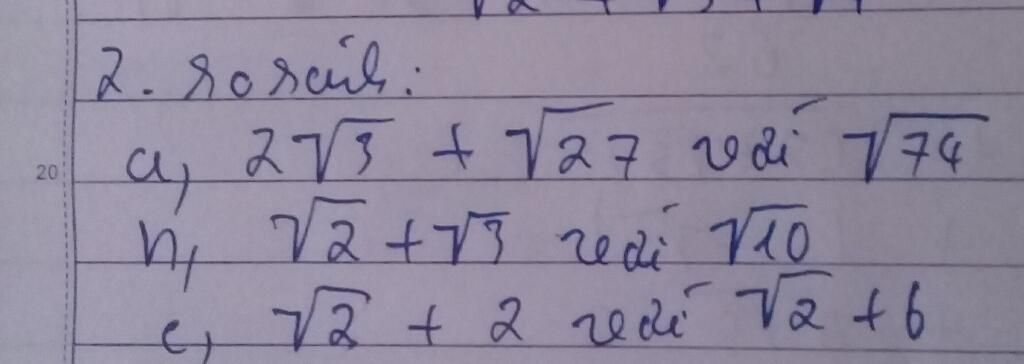 2. So sánh:
a, 2√3 + √27 với √74
b, √2 + √3 với √10
c, √2 + 2 với √2 + 6
20